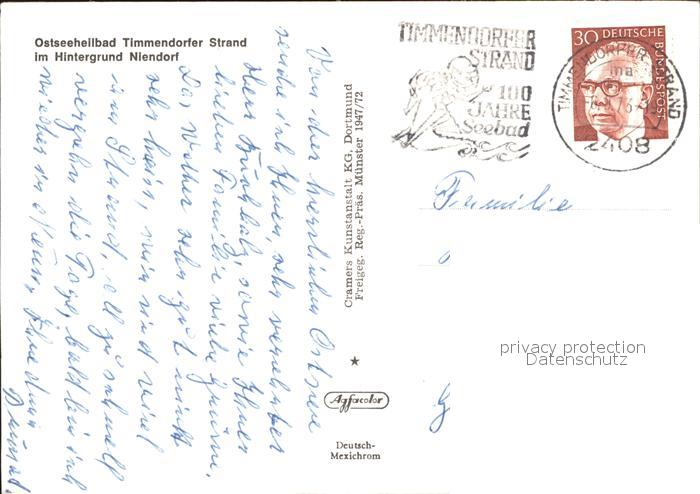 Ostseeheilbad Timmendorfer Strand
im Hintergrund Niendorf
Von der herrlichen Ostsee
sende ich Ihnen, sehr verehrter
Herr sowie Ihrer
lieben Familie viele Grüsse.
Das Wetter sehr gut nicht
sehr heiss, wir sind viel
am Strand, all zu schnell
vergehn die Tage, bald bin ich
wieder in
Cramers Kunstanstalt KG, Dortmund
Freigeg. Reg.-Präs. Münster 1947/72
★
Agfacolor
Deutsch-
Mexichrom
TIMMENDORFER
STRAND
100
JAHRE
Seebad
30 DEUTSCHE
BUNDESPOST
TIMMENDORFER STRAND
ma
2408
Familie
privacy protection
Datenschutz